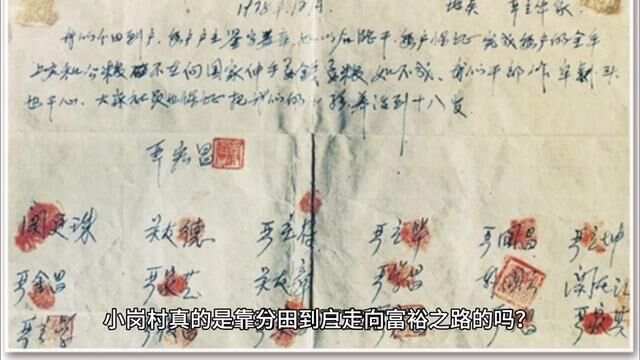 1978年12月 地点 严立华家
我们分田到户,每户户主签字盖章,如以后能干,每户保证完成每户的全年
上交和公粮不在向国家伸手要钱要粮如不成,我们干部作牢刹头
也干心,大家社员也保证把我们的小孩养活到十八岁.
严宏昌
关廷珠 关友德 严立符 严立华 严国昌 严立坤
严金昌 严家芝 关友章 严学昌 韩国云 关友江
严立学
小岗村真的是靠分田到户走向富裕之路的吗?